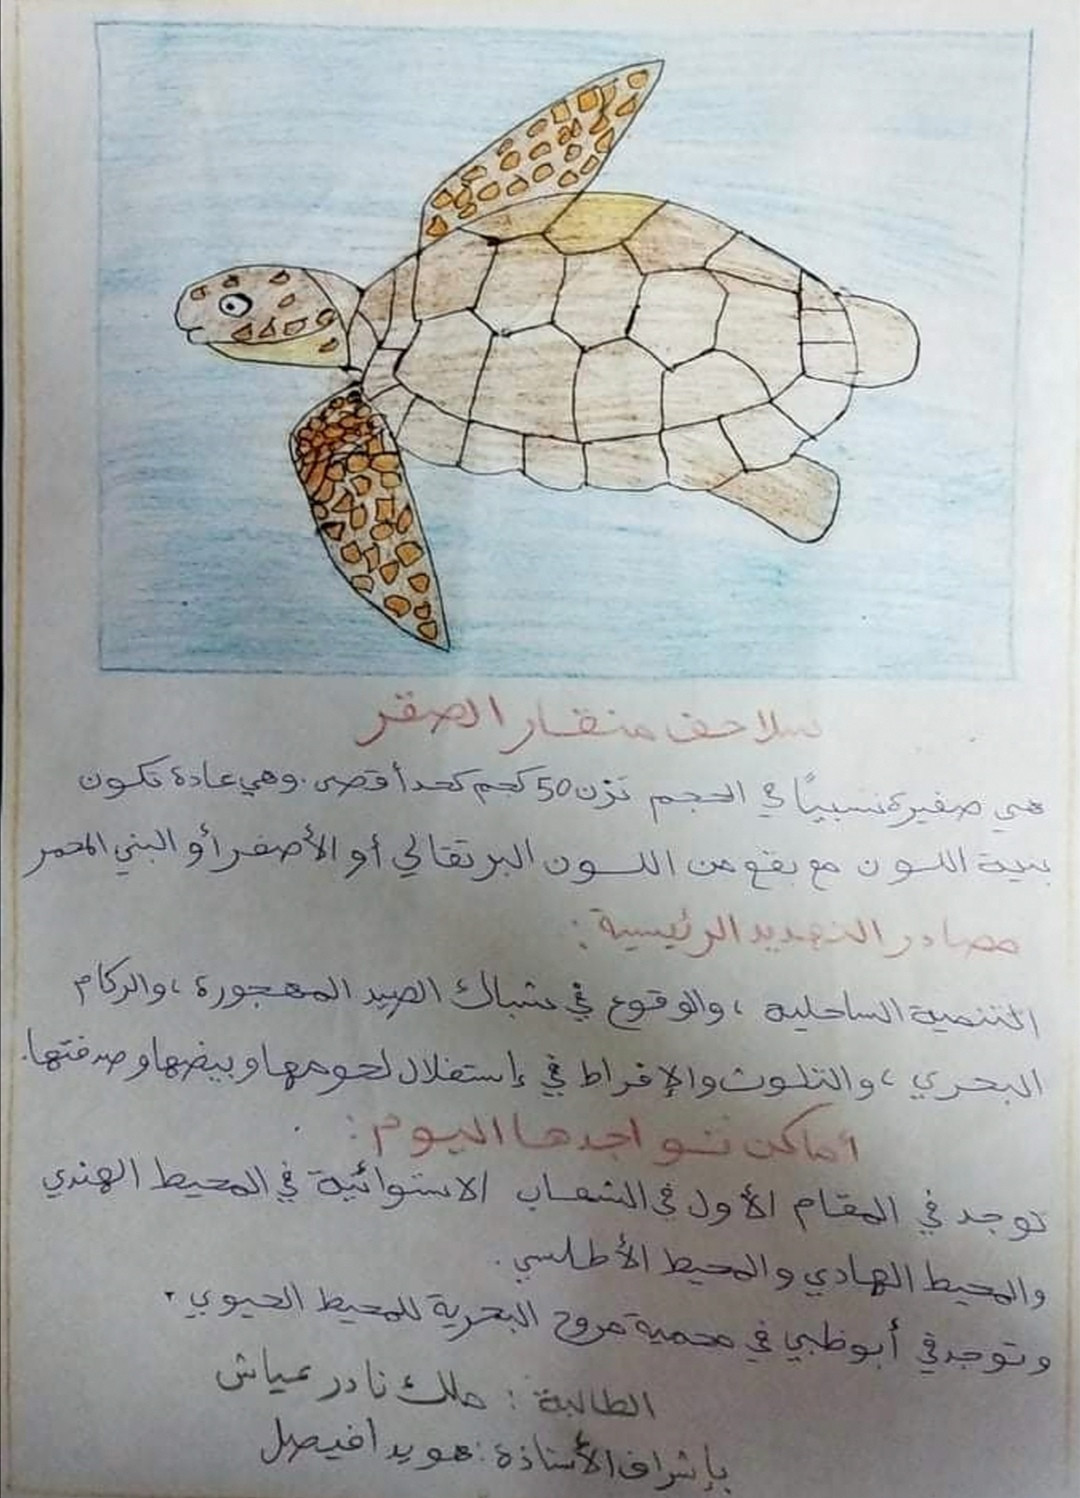 سلاحف منقار الصقر
هي صغيرة نسبيًا في الحجم تزن 50 كجم كحد أقصى. وهي عادة تكون
بنية اللون مع بقع من اللون البرتقالي أو الأصفر أو البني المحمر
مصادر التهديد الرئيسية :
التنمية الساحلية ، والوقوع في شباك الصيد المهجورة ، والركام
البحري ، والتلوث والإفراط في إستغلال لحومها وبيضها وصدفتها.
أماكن تواجدها اليوم :
توجد في المقام الأول في الشعاب الاستوائية في المحيط الهندي
والمحيط الهادي والمحيط الأطلسي .
وتوجد في أبوظبي في محمية مروح البحرية للمحيط الحيوي .
الطالبة : ملك نادر عياش
بإشراف الأستاذة : هويدا فيصل